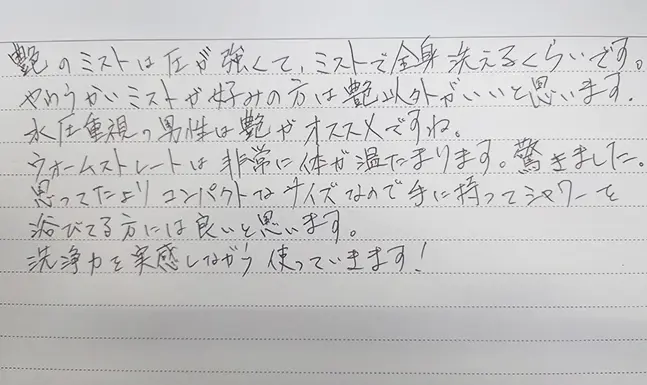 艶のミストは圧が強くて、ミストで全身洗えるくらいです。
やわらかいミストが好みの方は艶以外がいいと思います。
水圧重視の男性は艶がオススメですね。
ウォームストレートは非常に体が温たまります。驚きました。
思ってたよりコンパクトなサイズなので手に持ってシャワーを
浴びてる方には良いと思います。
洗浄力を実感しながら使っていきます！